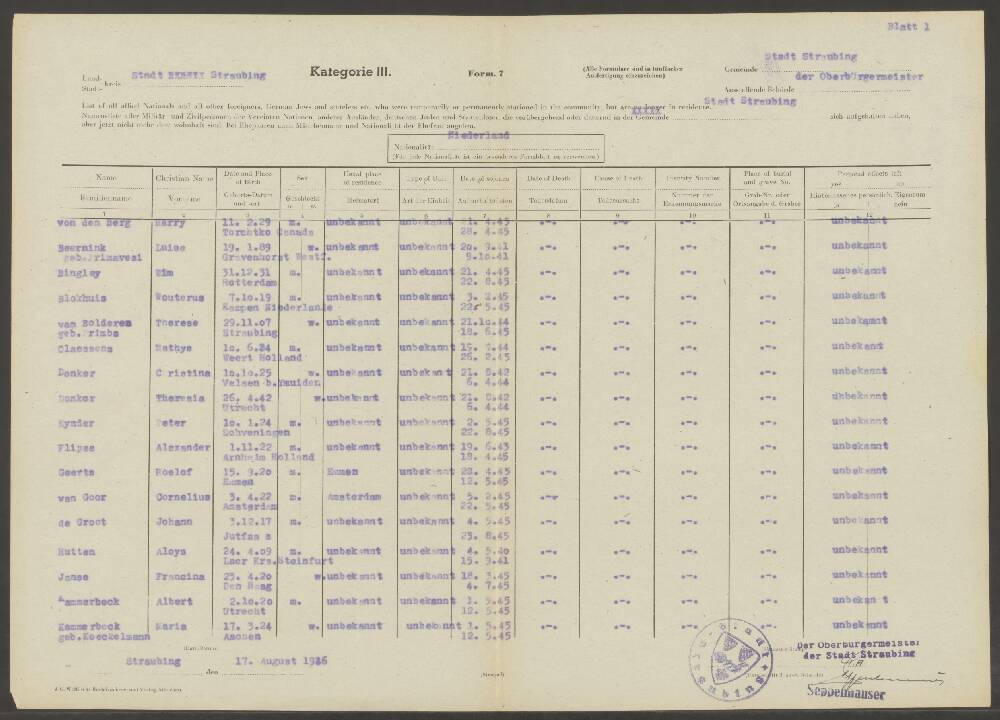 Blatt 1
Stadt Straubing
Kategorie III.
Form. 7
(Alle Formulare sind in fünffacher
Ausfertigung einzureichen)
Stadt Straubing
Gemeinde
der Oberbürgermeister
Ausstellende Behörde
List of all allied Nationals and all other foreigners, German Jews and stateless etc. who were temporarily or permanently stationed in the community, but are no longer in residence.
Stadt Straubing
Namensliste aller Militär- und Zivilpersonen der Vereinten Nationen, anderer Ausländer, deutscher Juden und Staatenloser, die vorübergehend oder dauernd in der Gemeinde sich aufgehalten haben,
aber jetzt nicht mehr dort wohnhaft sind. Bei Ehepaaren auch Mädchenname und Nationalität der Ehefrau angeben.
Niederland
Nationalität:
(Für jede Nationalität ist ein besonderes Formblatt zu verwenden)
Name Christian Name Date and Place of Birth Sex Usual place of residence Type of Unit Date of sojourn Date of Death Cause of Death Identity Number Place of burial and grave No. Personal effects left yes no
Familienname Vorname Geburts-Datum und -ort Geschlecht Heimatort Art der Einheit Aufenthaltszeiten Todesdatum Todesursache Nummer der Erkennungsmarke Grab-Nr. oder Ortsangabe d. Grabes Hinterlassenes persönlich. Eigentum ja nein
1 2 3 4 5 6 7 8 9 10 11 12
von den Berg Harry 11. 2.29 m. unbekannt unbekannt 21. 4.45 .-. .-. .-. .-. unbekannt
Torchtko Canada 28. 4.45
Beernink Luise 19. 1.89 w. unbekannt unbekannt 20. 9.41 .-. .-. .-. .-. unbekannt
geb.Primavesi Gravenhorst Westf. 9.10.41
Bingley Wim 31.12.31 m. unbekannt unbekannt 21. 4.45 .-. .-. .-. .-. unbekannt
Rotterdam 22. 8.45
Blokhuis Wouterus 7.10.19 m. unbekannt unbekannt 3. 2.45 .-. .-. .-. .-. unbekannt
Kampen Niederlande 22. 5.45
van Bolderen Therese 29.11.07 w. unbekannt unbekannt 21.10.44 .-. .-. .-. .-. unbekannt
geb.Krimbs Straubing 18. 6.45
Claessens Mathys 10. 6.24 m. unbekannt unbekannt 19. 7.44 .-. .-. .-. .-. unbekannt
Weert Holland 26. 2.45
Donker Christina 10.10.25 w. unbekannt unbekannt 21. 8.42 .-. .-. .-. .-. unbekannt
Velsen b.Ymuiden 6. 4.44
Donker Theresia 26. 4.42 w.unbekannt unbekannt 21. 8.42 .-. .-. .-. .-. uhbekannt
Utrecht 6. 4.44
Eymder Peter 10. 1.24 m. unbekannt unbekannt 2. 5.45 .-. .-. .-. .-. unbekannt
Schveningen 22. 8.45
Flipse Alexander 1.11.22 m. unbekannt unbekannt 19. 6.43 .-. .-. .-. .-. unbekannt
Arnheim Holland 18. 4.45
Geerts Roelof 15. 9.20 m. Emmen unbekannt 28. 4.45 .-. .-. .-. .-. unbekannt
Emmen 12. 5.45
van Goor Cornelius 3. 4.22 m. Amsterdam unbekannt 5. 2.45 .-. .-. .-. .-. unbekannt
Amsterdam 22. 5.45
de Groot Johann 3.12.17 m. unbekannt unbekannt 4. 5.45 .-. .-. .-. .-. unbekannt
Jutfaas 23. 8.45
Hutten Aloys 24. 4.09 m. unbekannt unbekannt 4. 5.40 .-. .-. .-. .-. unbekannt
Laer Krs.Steinfurt 15. 9.41
Janse Francina 23. 4.20 w.unbekannt unbekannt 18. 3.45 .-. .-. .-. .-. unbekannt
Den Haag 4. 7.45
Kammerbeck Albert 2.10.20 m. unbekannt unbekannt 1. 5.45 .-. .-. .-. .-. unbekannt
Utrecht 12. 5.45
Kammerbeck Maria 17. 3.24 w. unbekannt unbekannt 1. 5.45 .-. .-. .-. .-. unbekannt
geb.Koeckelmann Aachen 12. 5.45
Straubing, den 17. August 1946
(Stempel)
Der Oberbürgermeister
der Stadt Straubing
Seppelhauser